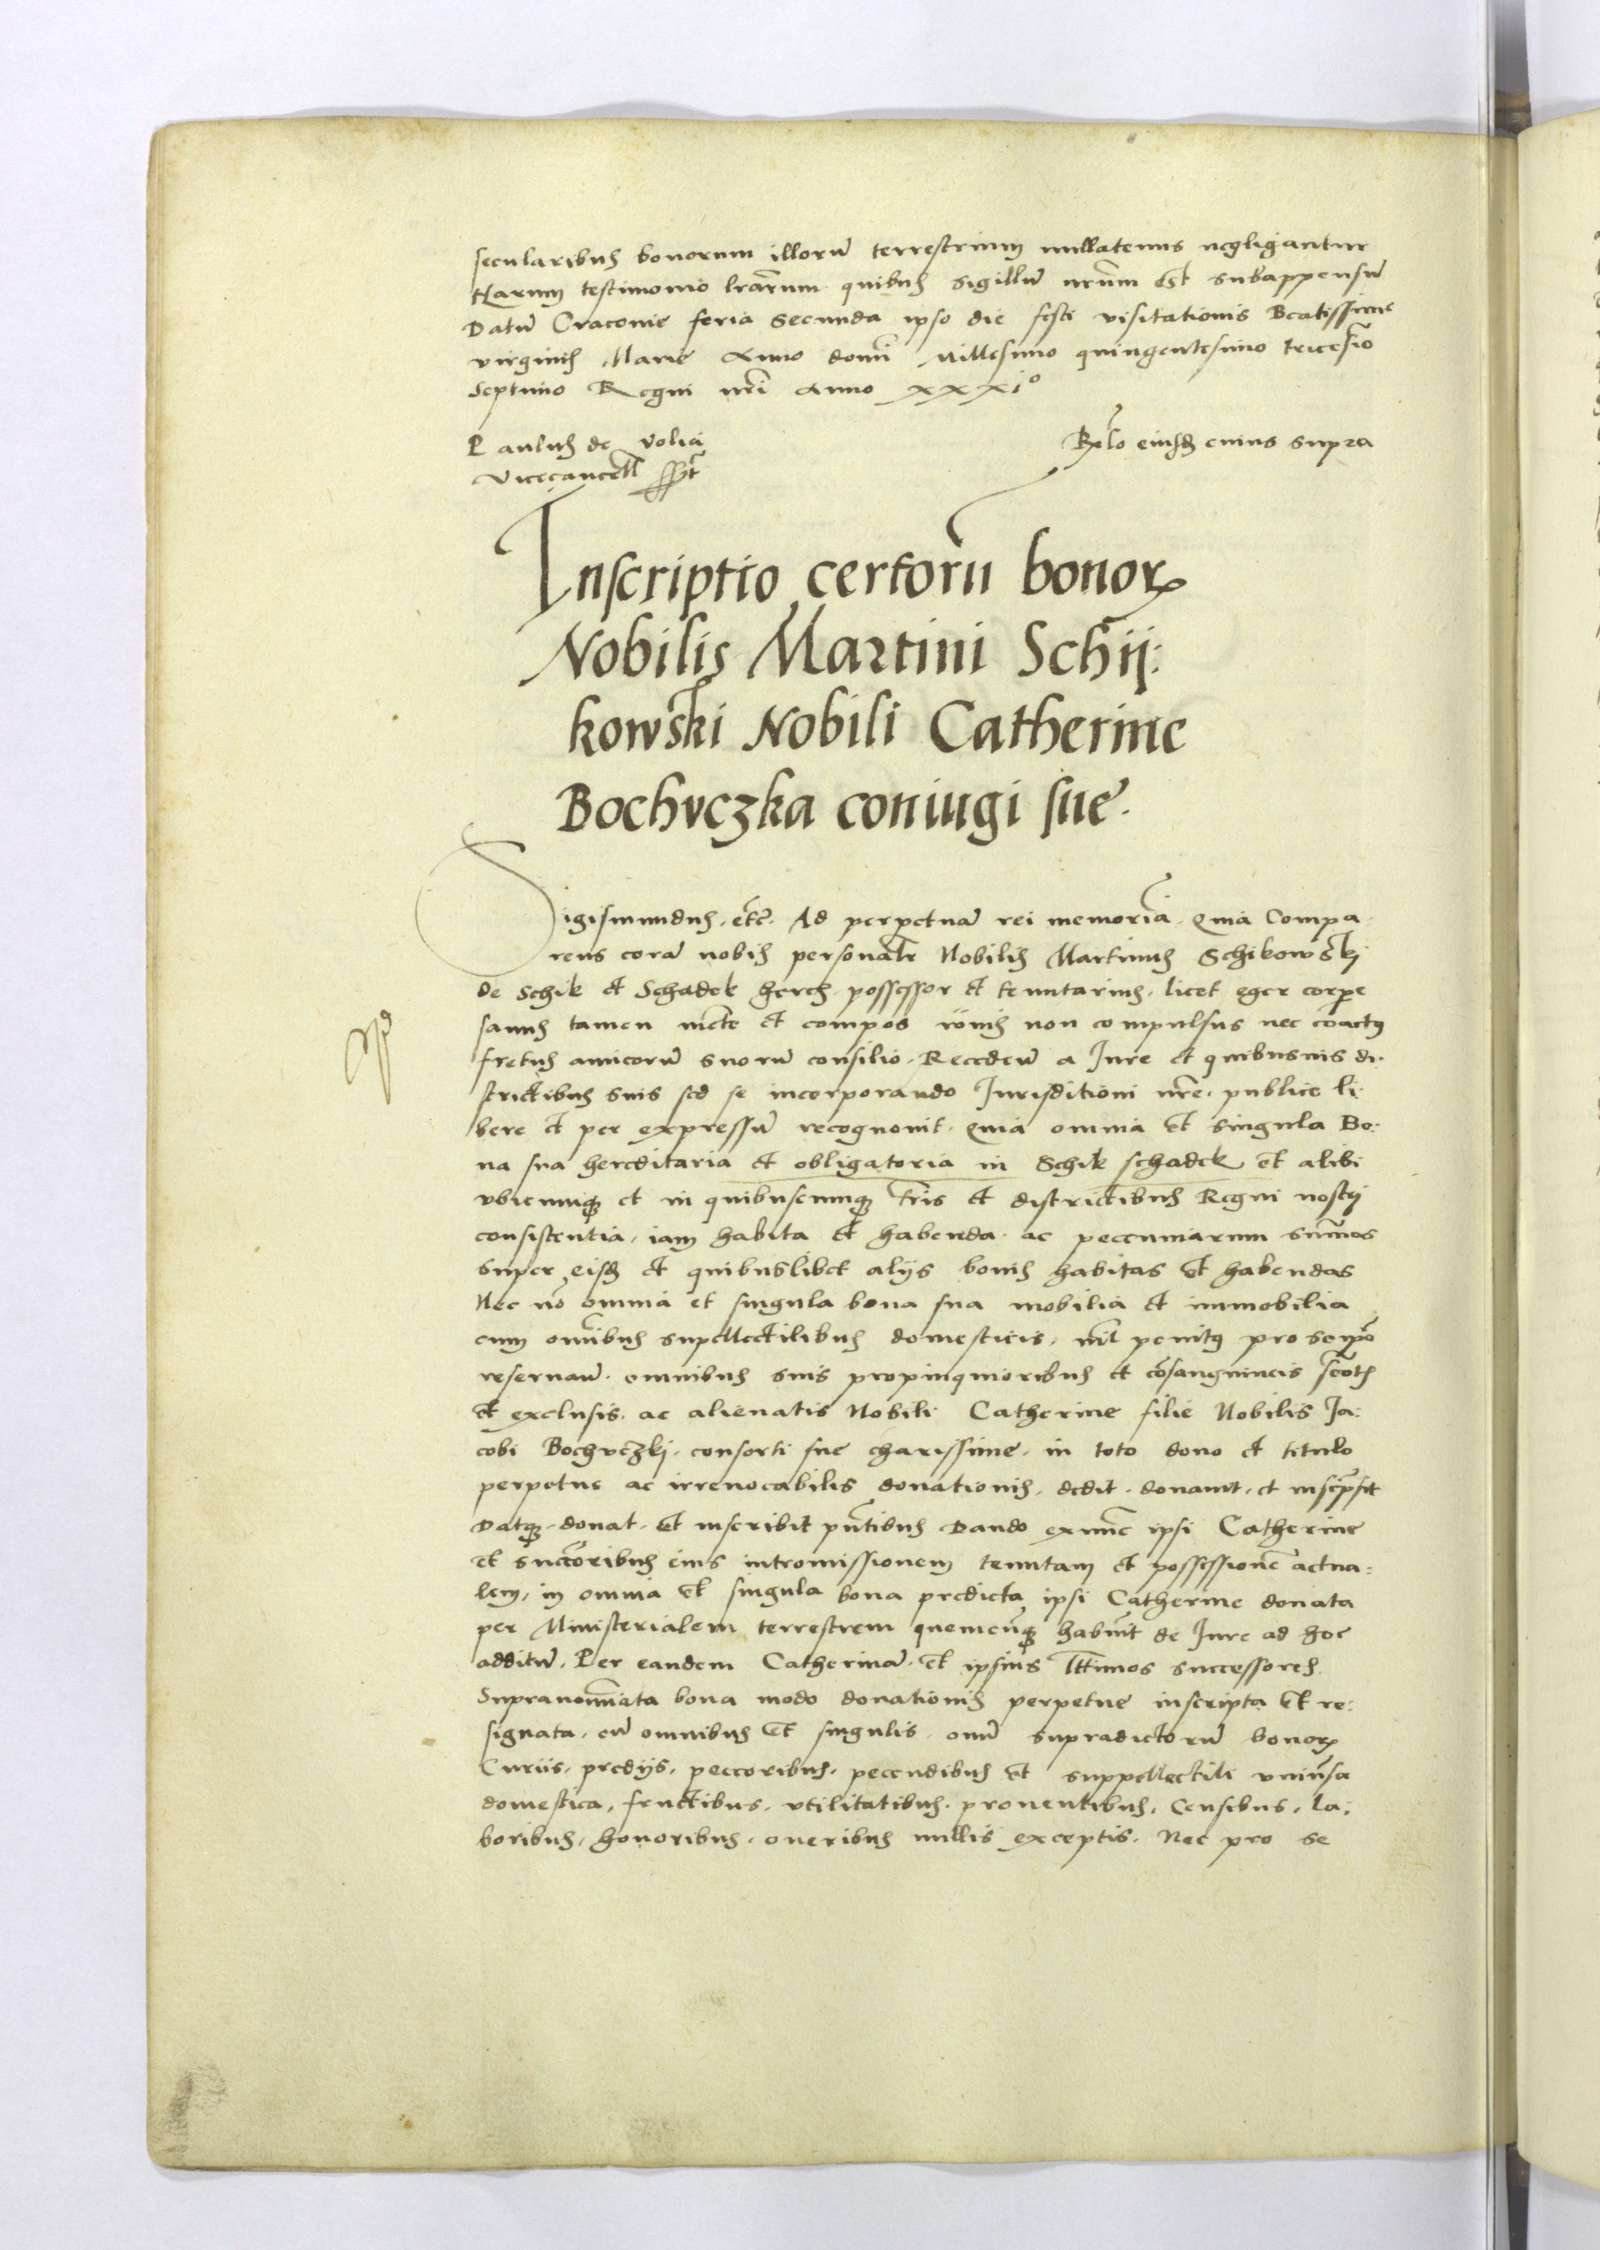 secularibus bonorum illorū terrestrium nullatenus negligantur
Harum testimonio lrārum quibus sigillū nrūm est subappensū
Datū Cracovie feria Secunda ipso die festi visitationis Beatissime
virginis Marie Anno domī Millesimo quingentesimo tricesīo
Septimo Regni nrī Anno xxxiº
Paulus de volia
Vicecancell̄ sspt̄
Rlō eiusd cuius supra
Inscriptio certorū bonoꝝ
Nobilis Martini Schij:
kowski Nobili Catherine
Bochvczka coniugi sue.
Sigismundus. etc̄. Ad perpetuā rei memoriā. Quia Compa
rens corā nobis personalr̄ Nobilis Martinus Schikowskj
de Schik et Schadek heres. possessor et tenutarius. licet eger corpe
sanus tamen mēte et compos rōnis non compulsus nec coactꝰ
fretus amicorū suorū consilio. Recedeñ a Jure et quibusuis di.
strictibus suis sed se incorporando Jurisditioni nrē. publice li
bere et per expressū recognouit. Quia omnia et singula Bo:
na sua hereditaria et obligatoria in Schik schadek et alibi
vbicunqꝫ et in quibuscunqꝫ trīs et districtibus Regni nostrj
consistentia. iam habita et habenda. ac peccuniarum sum̄as
super eisd et quibuslibet alijs bonis habitas et habendas
Nec nō omnia et singula bona sua mobilia et immobilia
cum omībus supellectilibus domesticis. nīl penitꝰ pro seipō
reseruañ. omnibus suis propinquioribus et cōsanguineis scōtis
et exclusis. ac alienatis Nobili Catherine filie Nobilis Ja:
cobi Bochvczkj. consorti sue charissime. in toto dono et titulo
perpetue ac irreuocabilis donationis. dedit. donauit. et inscrpsit
Datqꝫ. donat. et inscribit pn̄tibus Dando exnūc ipsi Catherine
et succōribus eius intromissionem tenutam et possessionē actua:
lem, in omnia et singula bona predicta ipsi Catherine donata
per Ministerialem terrestrem quemcūqꝫ habuīt de Jure ad hoc
additū. Per eandem Catherinā. et ipsius lt̄timos successores.
Supranoīata bona modo donationis perpetue inscripta et re:
signata. cū omnibus et singulis. oniū supradictorū bonoꝝ
Curiis. predijs. peccoribus. peccudibus et suppellectili vniūsa
domestica. fructibus. vtilitatibus. prouentibus. Censibus. la:
boribus. honoribus. oneribus nullis exceptis. Nec pro se